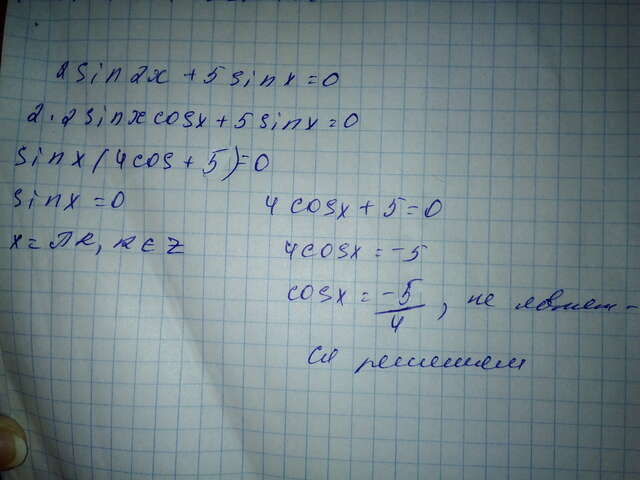 2sin2x + 5sinx = 0
2·2sinxcosx + 5sinx = 0
sinx(4cos + 5) = 0
sinx = 0
4cosx + 5 = 0
x = πk, k ∈ Z
4cosx = -5
cosx = -5/4, не являет-
ся решением